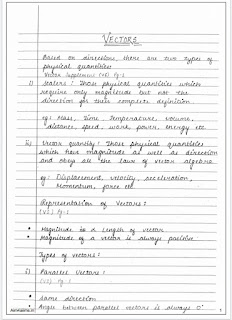 VECTORS
Based on directions, there are two types of
physical quantities
Vector Supplement (VS) Pg-1
i) Scalars : Those physical quantities which
require only magnitude but not the
direction for their complete definition
eg : Mass, Time, Temperature, volume,
distance, speed, work, power, energy etc.
ii) Vector quantity : Those physical quantities
which have magnitude as well as direction
and obey all the laws of vector algebra
eg : Displacement, velocity, acceleration,
Momentum, force etc
Representation of Vectors :
(VS) Pg-1
Magnitude is α Length of vector
Magnitude of a vector is always positive.
Types of vectors :
i) Parallel Vectors :
(VS) Pg-1
Same direction
Angle between parallel vectors is always 0°
1